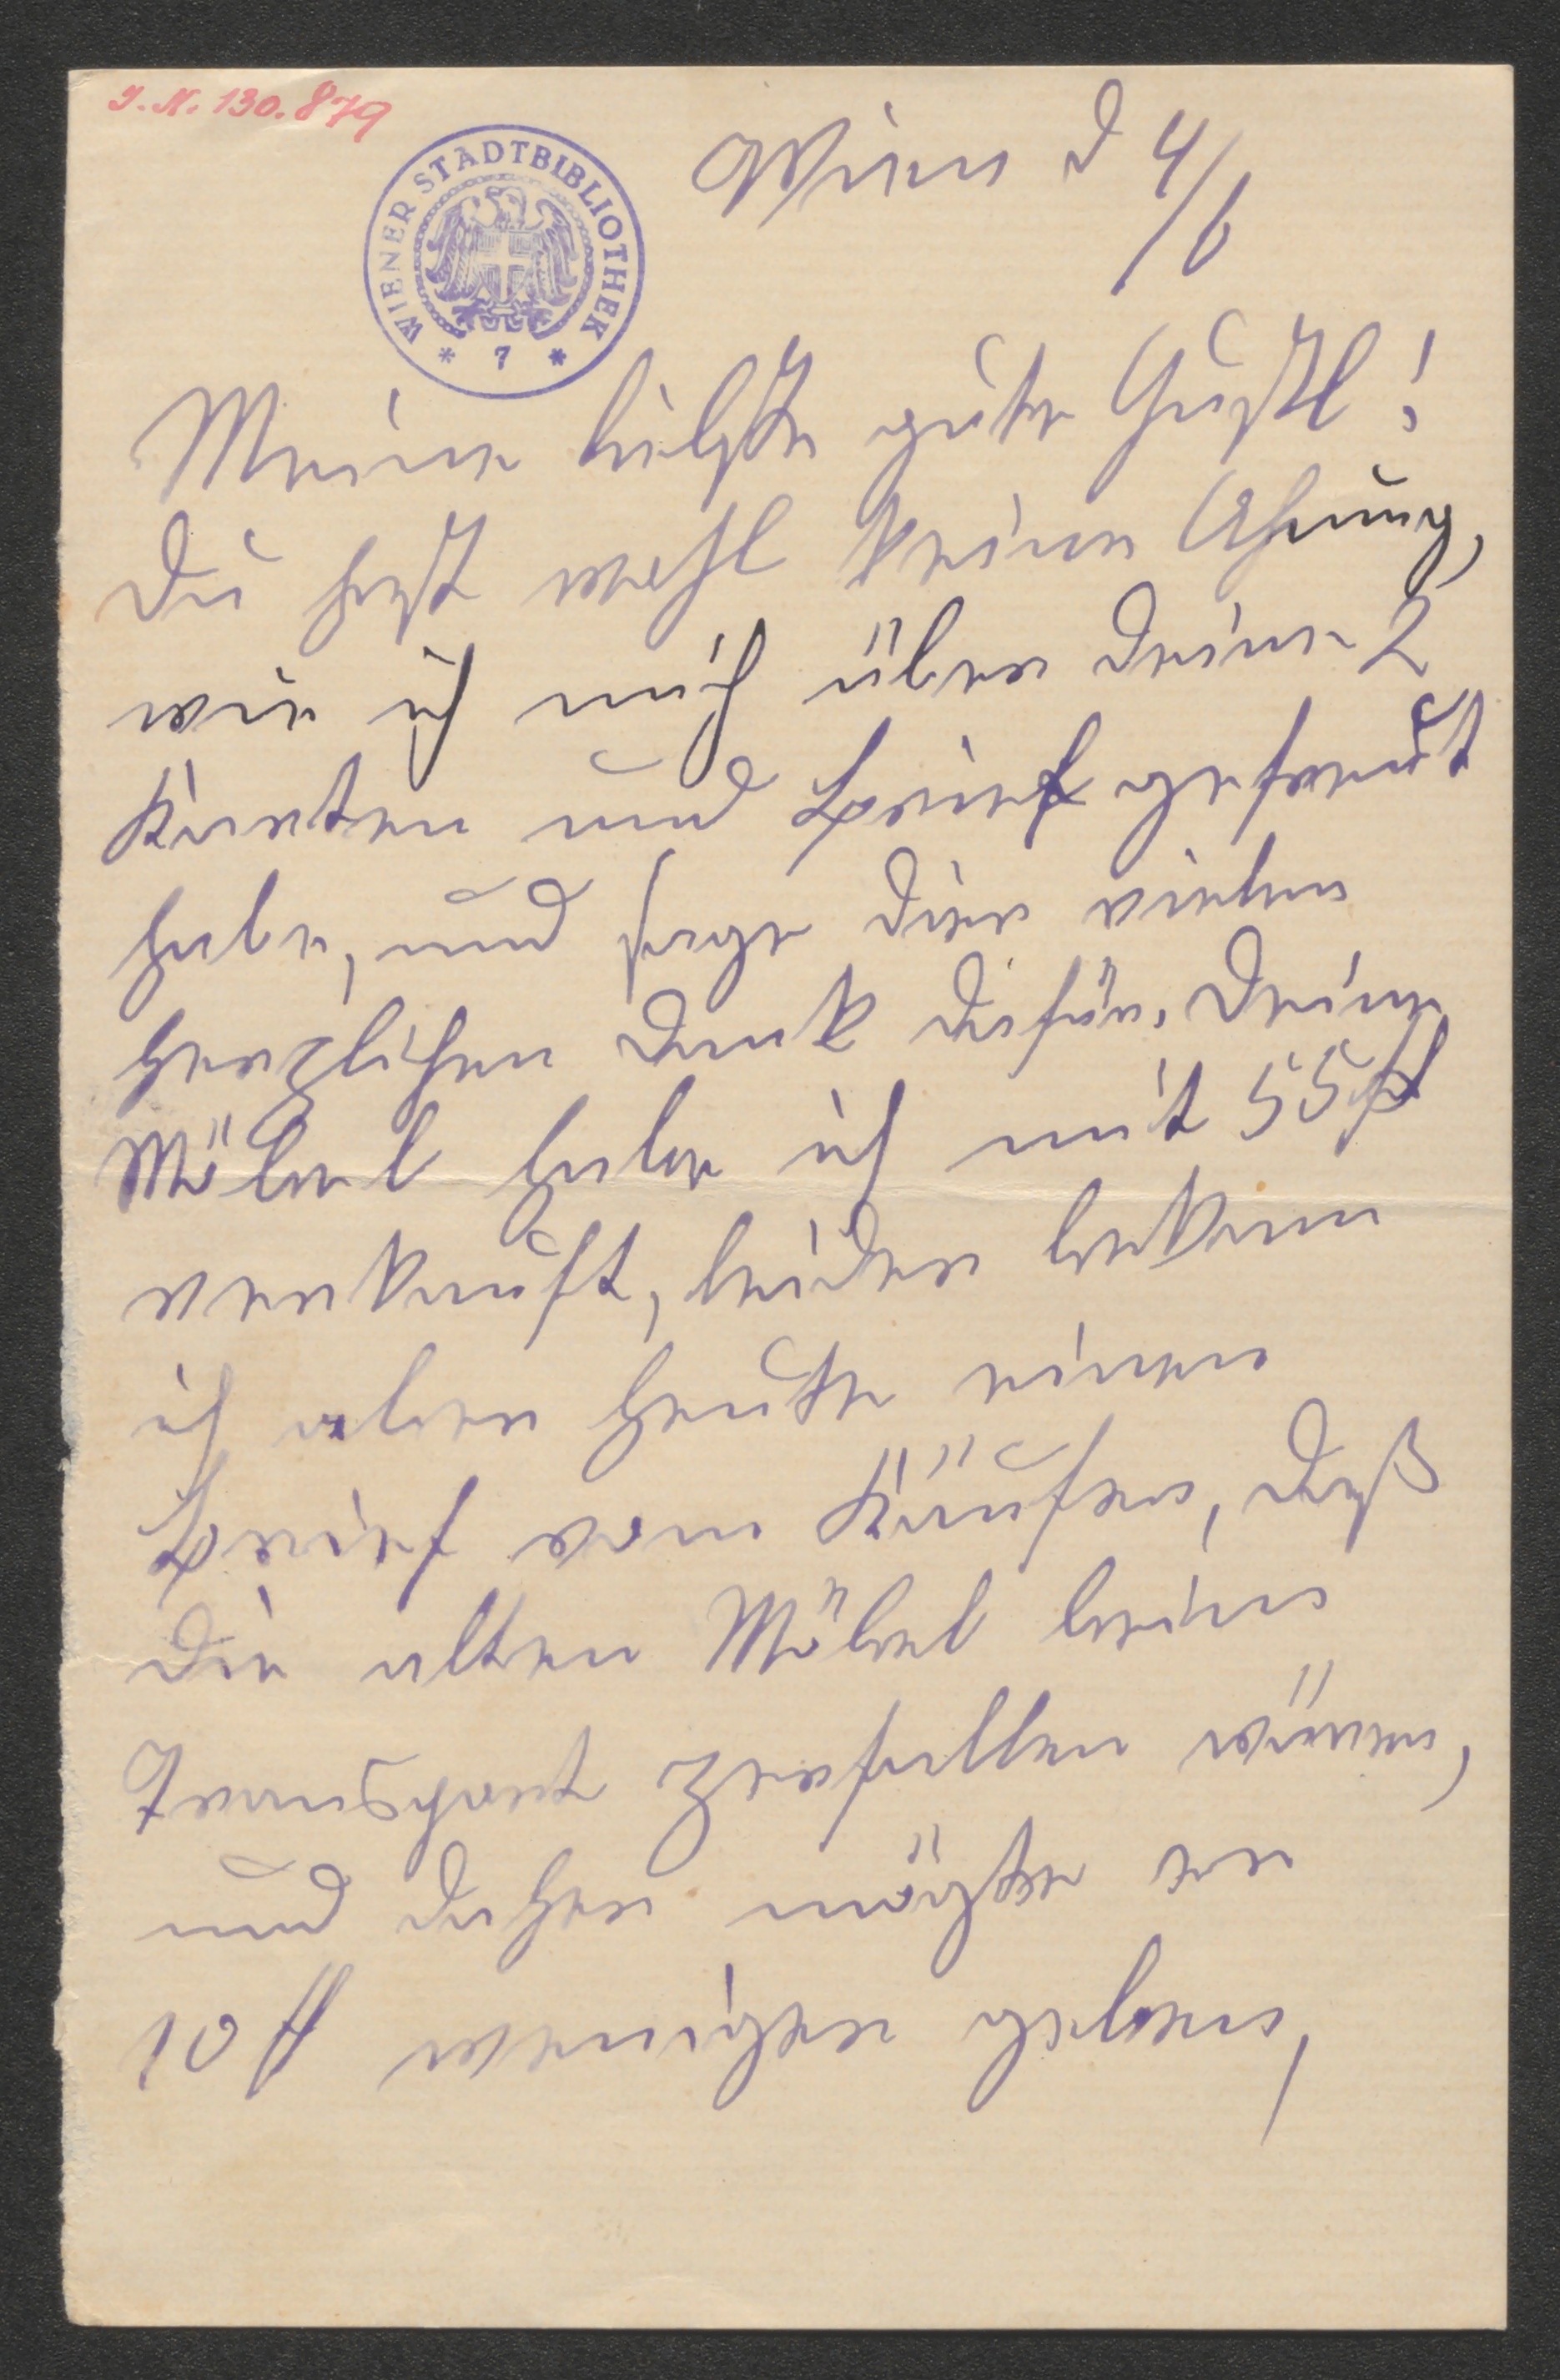 I. N. 130.879
WIENER STADTBIBLIOTHEK
* 7 *
Wien d 4/6
Meine liebste gute Gustl!
Du hast wohl keine Ahnung,
wie ich mich über Deine 2
Karten und Brief gefreut
habe, und sage Dir vielen
herzlichen Dank dafür. Deine
Möbel habe ich mit 55 fl
verkauft, leider bekam
ich aber heute einen
Brief vom Käufer, daß
die alten Möbel beim
Transport zerfallen wären,
und daher möchte er
10 fl weniger geben,